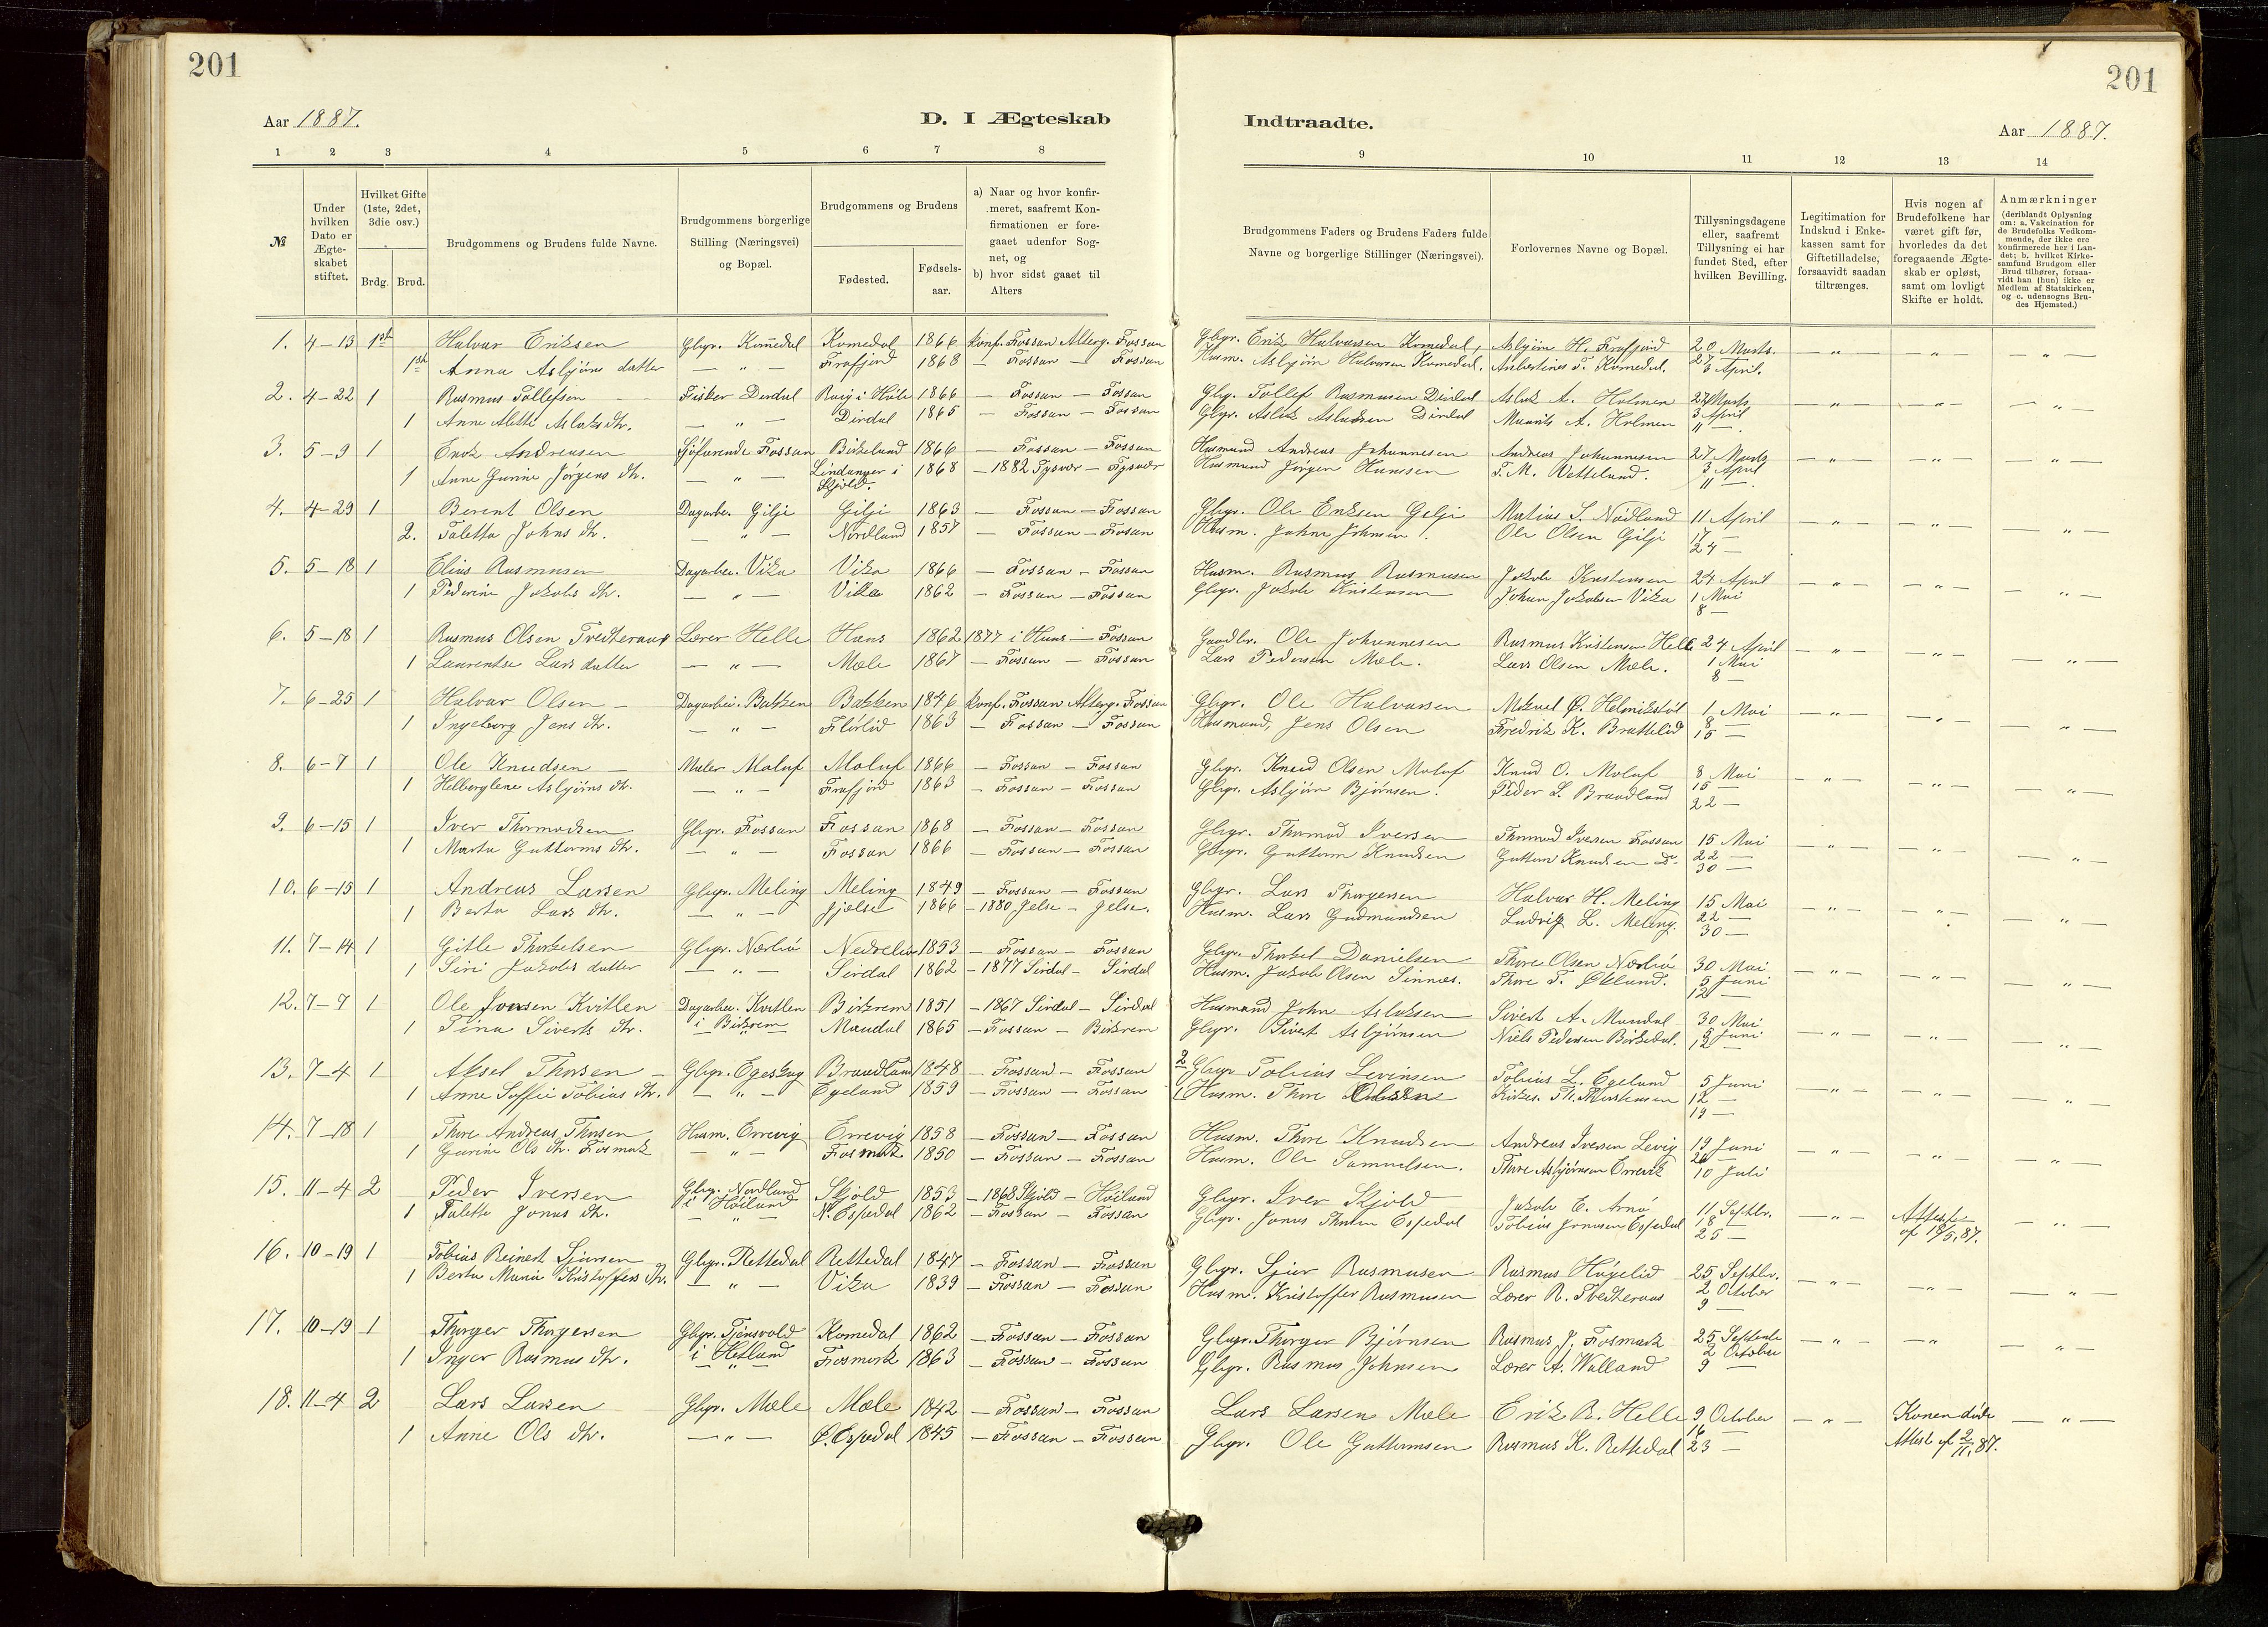 201
201
Aar 1887.
D. I Ægteskab
Indtraadte.
Aar 1887.
1 2 3 4 5 6 7 8
9 10 11 12 13 14
№
Under hvilken Dato er Ægte-skabet stiftet.
Hvilket Gifte (1ste, 2det, 3die osv.)
Brdg. Brud.
Brudgommens og Brudens fulde Navne.
Brudgommens borgerlige Stilling (Næringsvei) og Bopæl.
Brudgommens og Brudens
Fødested.
Fødsels-aar.
a) Naar og hvor konfir-meret, saafremt Kon-firmationen er fore-gaaet udenfor Sog-net, og
b) hvor sidst gaaet til Alters
Brudgommens Faders og Brudens Faders fulde Navne og borgerlige Stillinger (Næringsvei).
Forlovernes Navne og Bopæl.
Tillysningsdagene eller, saafremt Tillysning ei har fundet Sted, efter hvilken Bevilling.
Legitimation for Indskud i Enke-kassen samt for Giftetilladelse, forsaavidt saadan tiltrænges.
Hvis nogen af Brudefolkene har været gift før, hvorledes da det foregaaende Ægte-skab er opløst, samt om lovligt Skifte er holdt.
Anmærkninger (deriblandt Oplysning om: a. Vakcination for de Brudefolks Vedkom-mende, der ikke ere konfirmerede her i Lan-det; b. hvilket Kirke-samfund Brudgom eller Brud tilhører, forsaa-vidt han (hun) ikke er Medlem af Statskirken, og c. udensogns Bru-des Hjemsted.)
1. 4–13 1ste Halvar Eriksen Gbgr. Komedal Komedal 1866 Konf. Fossan Alterg. Fossan Gbgr. Erik Halvarsen Komedal, Asbjörn H. Frafjord 20 Marts. — " — " "
1ste Anna Asbjörns datter — " — Frafjord 1868 — Fossan — Fossan Husm. Asbjörn Halvorsen Komedal. T. Komedal. 27 3 April.
2. 4–22 1 Rasmus Tollefsen Fisker Dirdal Høle 1866 — Fossan — Fossan Gbgr. Tollef Rasmusen Dirdal Aslak A. Holmen 27 Marts — " — — " — — " —
1 Anne Alette Aslaks dtr. — " — Dirdal 1865 — Fossan — Fossan Gbgr. Aslak Aslaksen Dirdal Maurits A. Holmen 3 April 11 —
3. 5–9 1 Erik Andreasen Sjöfarende Fossan Birkeland 1866 — Fossan — Fossan Husmand Andreas Johannesen Andreas Johannesen 27 Marts — " — — " — — " —
1 Anne Gurine Jörgens dtr. — " — Lindanger i Skjold. 1868 — 1882 Tysvær — Tysvær Husmand Jörgen Hansen T. M. Vetteland. 3 April 11 —
4. 4–29 1 Berent Olsen Dagarbe. Gilje Gilje 1863 — Fossan — Fossan Gbgr. Ole Eriksen Gilje Matias S. Nödland 11 April — " — — " — — " —
2. Taletta Johns dtr. — " — Nordland 1857 — Fossan — Fossan Husm. John Johnsen. Ole Olsen Gilje 17 — 24 —
5. 5–18 1 Elias Rasmusen Dagarbei. Vika Vika 1866 — Fossan — Fossan Husm. Rasmus Rasmusen Jakob Kristensen 24 April — " — — " — — " —
1 Pederine Jakobs dtr. — " — Vika 1862 — Fossan — Fossan Gbgr. Jakob Kristensen Johan Jakobsen Vika 1 Mai 8 —
6. 5–18 1 Rasmus Olsen Tvedteraas Lærer Helle Haus 1862 1877 i Haus — Fossan Gaardbr. Ole Johannesen Rasmus Kristensen Helle 24 April — " — — " — — " —
1 Laurentse Lars datter — " — Mæle 1867 — Fossan — Fossan Lars Pedersen Mæle. Lars Olsen Mæle. 1 Mai 8 —
7. 6–25 1 Halvar Olsen — Dagarbei. Bakken Bakken 1846 Konf. Fossan Alterg. Fossan Gbgr. Ole Halvarsen 1 Mai — " — — " — — " —
1 Ingeborg Jens dtr. — " — Flörlid 1863 — Fossan — Fossan Husmand, Jens Olsen Fredrik K. Brattelid 8 — 15 —
8. 6–7 1 Ole Knudsen — Maler Molaf Molaf 1866 — Fossan — Fossan Gbgr. Knud Olsen Molaf Knud O. Molaf 8 Mai — " — — " — — " —
1 Helberglene Asbjörns dtr. — " — Frafjord 1863 — Fossan — Fossan Gbgr. Asbjörn Bjørnsen. Peder S. Braadland 15 — 22 —
9. 6–15 1 Iver Thormodsen Gbgr. Fossan Fossan 1868 — Fossan — Fossan Gbgr. Thormod Iversen Thormod Iversen Fossan 15 Mai — " — — " — "
1 Marta Guttorms dtr. — " — Fossan 1866 — Fossan — Fossan Gbgr. Guttorm Knudsen Guttorm Knudsen do 22 — 30 —
10. 6–15 1 Andreas Larsen Gbgr. Meling Meling 1849 — Fossan — Fossan Gbgr. Lars Thorgersen Halvar H. Meling 15 Mai — " — — " — — " —
1 Berta Lars dtr. — " — Jelse 1866 — 1880 Jelse — Jelse. Husm. Lars Gudmundsen Ludvig L. Meling. 22 — 30 —
11. 7–14 1 Gitle Thorkelsen Gbgr. Nærliö Nedreliö 1853 — Fossan — Fossan Gbgr. Thorkel Danielsen Thore Olsen Nærliö 30 Mai — " — — " — — " —
1 Siri Jakobs datter — " — Sirdal 1862 — 1877 Sirdal — Sirdal Husm. Jakob Olsen Sinnæs. Thore T. Økland. 5 Juni 12 —
12. 7–7 1 Ole Jonsen Kvitlen Dagarbei. Kvitlen i Birkrem Birkrem 1851 — 1867 Sirdal — Sirdal Husmand John Aslaksen Sivert A. Mandal 30 Mai — " — — " — — " —
1 Tina Siverts dtr. " Maudal 1865 — Fossan — Birkrem Gbgr. Sivert Asbjörnsen Niels Pedersen Birkedal. 5 Juni 12 —
13. 7–4 1 Aksel Thorsen — Gbgr. Egeskog Braadland 1848 — Fossan — Fossan 2 Gbgr Tobias Levinsen Tobias L. Egeland 5 Juni — " — — " — — " —
1 Anne Soffie Tobias dtr. — " — Egeland 1859 — Fossan — Fossan 1 Husm. Thore Olsen Kirkes. Th. Thorstensen 12 — 19 —
14. 7–18 1 Thore Andreas Thorsen Husm. Errevig Errevig 1858 — Fossan — Fossan Husm. Thore Knudsen Andreas Iversen Levig 19 Juni — " — — " — — " —
1 Gurine Ols dtr. Fosmark — " — Fosmark 1850 — Fossan — Fossan Husm. Ole Samuelsen. Thore Asbjörnsen Errevik 26 10 Juli
15. 11–4 2 Peder Iversen Gbgr. Nordland i Höiland Skjold 1853 — 1868 Skjold — Höiland Gbgr. Iver Skjold Jakob E. Arnö 11 Septbr. — " — Attest af 18/5.87. — " —
1 Taletta Jonas dtr. — " — N. Espedal 1862 — Fossan — Fossan Gbgr. Jonas Espedal Tobias Jonasen Espedal 18 — 25 —
16. 10–19 1 Tobias Reinert Sjursen Gbgr. Rettedal Rettedal 1847 — Fossan — Fossan Gbgr. Sjur Rasmusen Rasmus Høgelid 25 Septbr. — " — — " — — " —
1 Berta Maria Kristoffers dtr. — " — Vika 1839 — Fossan — Fossan Husm. Kristoffer Rasmusen Lærer R. Tvedteraas 2 October 9 —
17. 10–19 1 Thorger Thorgersen Gbgr. Tjensvold i Hetland Komedal 1862 — Fossan — Fossan Gbgr. Thorger Bjørnsen Rasmus J. Fosmark 25 Septbr — " — — " — " —
1 Inger Rasmus dtr. — " — Fosmark 1863 — Fossan — Fossan Gbgr. Rasmus Johnsen Lærer A. Walland 2 October 9 —
18. 11–4 2 Lars Larsen Gbgr. Mæle Mæle 1842 — Fossan — Fossan Lars Larsen Mæle Erik R. Helle 9 October — " — Konen död — " —
1 Anne Ols dtr. — " — Ö. Espedal 1845 — Fossan — Fossan Gbgr. Ole Guttormsen Rasmus K. Rettedal 16 23 — Attest af 2/11.87.